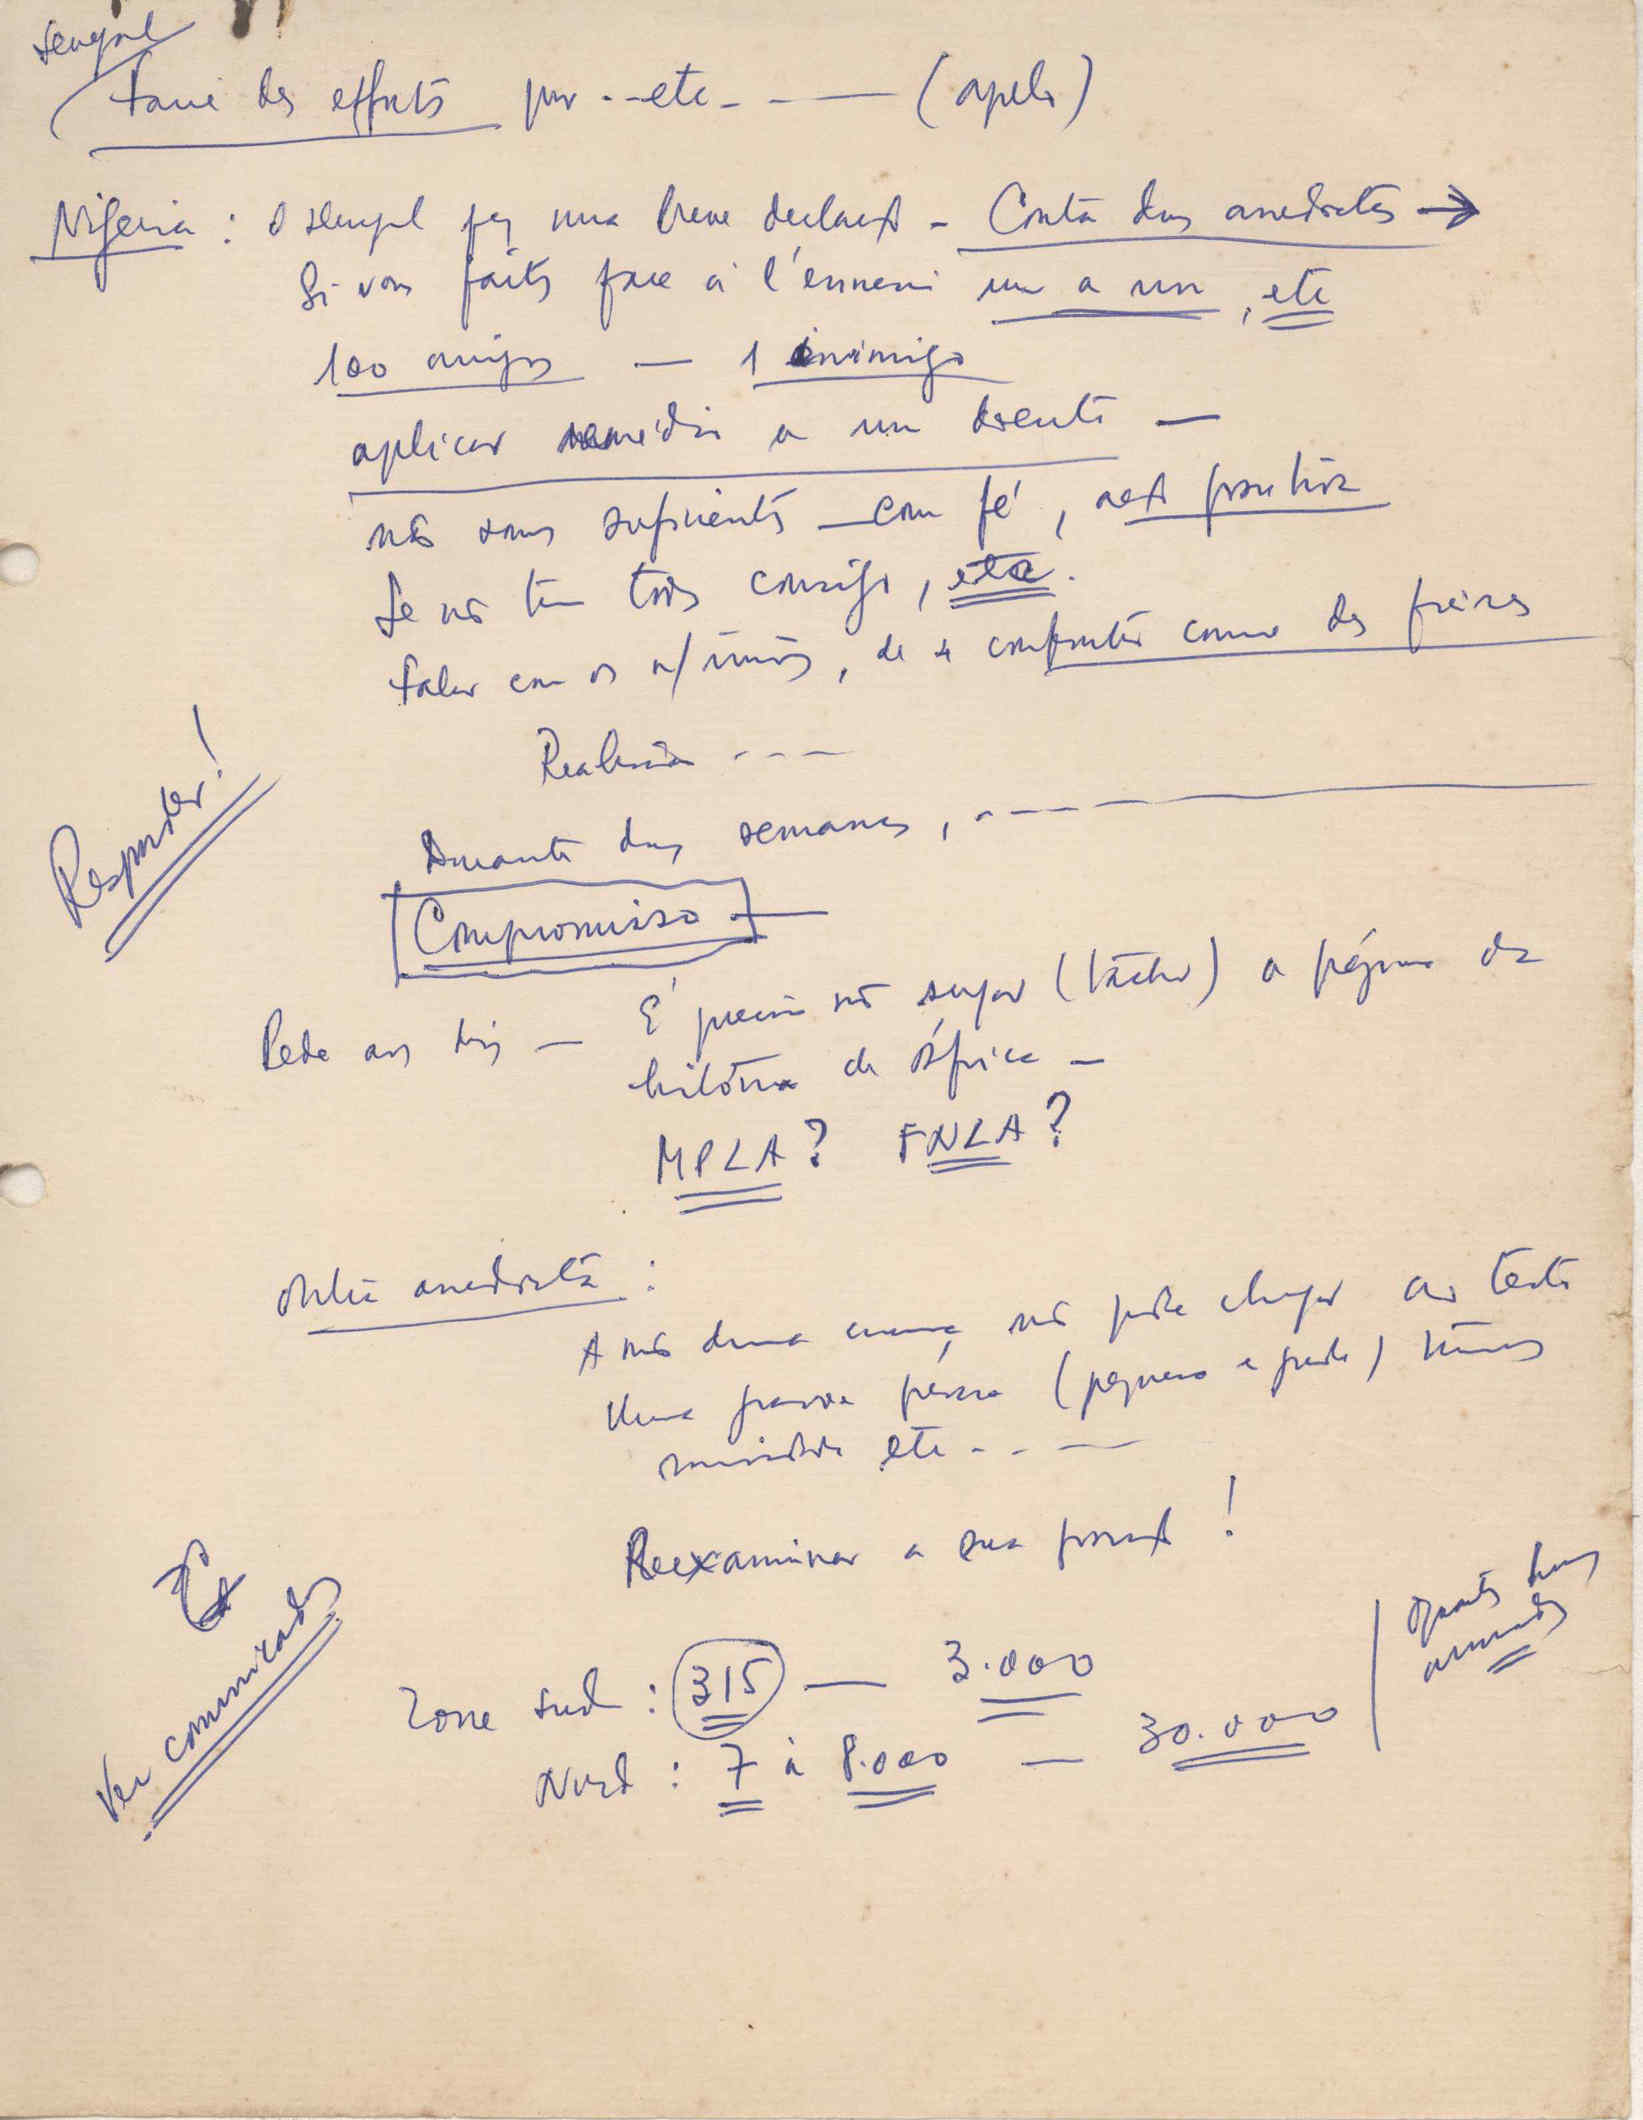 Senegal
Faire des efforts pour --etc- - — (apelo)
Nigeria : O Senegal fez uma breve declaração - Conta duas anedotas →
Si vous faites face à l'ennemi un a un, etc
100 amigos — 1 inimigo
aplicar remédio a um doente —
não somos suficientes — com fé, ação positiva
Se não tem todos consigo, etc.
Falar com os n/ irmãos, de se confronter comme des frères
Realização - - -
Responder!
Durante duas semanas, - - - —
Compromisso —
Pede aos dois — É preciso não sujar (tacher) a página da
história de África —
MPLA? FNLA?
Outra anedota :
A mão duma criança não pode chegar ao tecto
Uma grande pessoa (pequeno e grande)
etc - - —
Reexaminar a sua posição !
Ver comunicados
Quantos homens
armados
Zone Sud : 315 — 3.000
Nord : 7 à 8.000 — 30.000